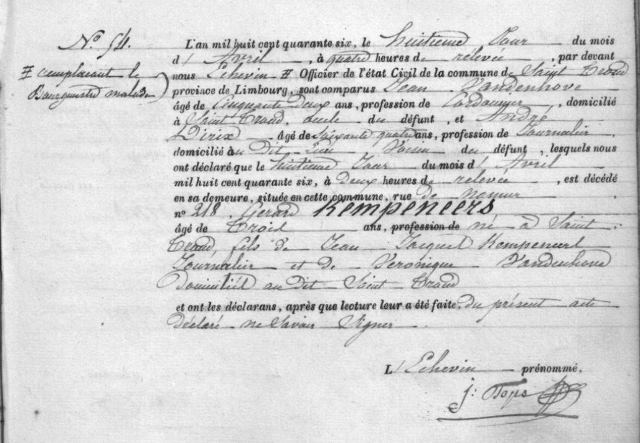 N° 54.
L'an mil huit cent quarante six, le huitieme Jour du mois
d'Avril, à quatre heures de relevée, par devant
nous Echevin ǂ Officier de l'état Civil de la commune de Saint Trond
ǂ remplacant le
Bourgmestre malade
province de Limbourg, sont comparus Jean Vandenhove
âgé de Cinquante Deux ans, profession de Cordonnier, domicilié
à Saint Trond, oncle du défunt, et André
Dirix âgé de Soixante quatre ans, profession de Journalier
domicilié au Dit lieu Voisin du défunt, lesquels nous
ont déclaré que le huitieme Jour du mois d'Avril
mil huit cent quarante six, à Deux heures de relevée, est décédé
en sa demeure, située en cette commune, rue de Namur
n° 218, Gerard Kempeneers
âgé de Trois ans, profession né à Saint
Trond, fils de Jean Jacques Kempeneers
Journalier et de Veronique Vandenhove
Domicilié au Dit Saint Trond
et ont les déclarans, après que lecture leur a été faite du présent acte
Déclaré ne Savoir Signer
L'Echevin prénommé.
J: Tops